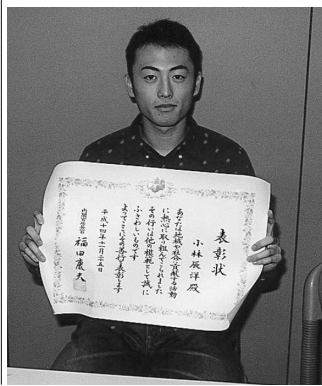 表彰状
小林展洋殿
あなたは地域や社会に貢献する活動
に熱心に取り組んでこられました
その行いは他の模範として誠に
ふさわしいものです
よってここにその善行を表彰します
平成十四年十一月二十五日
内閣官房長官
福田康夫